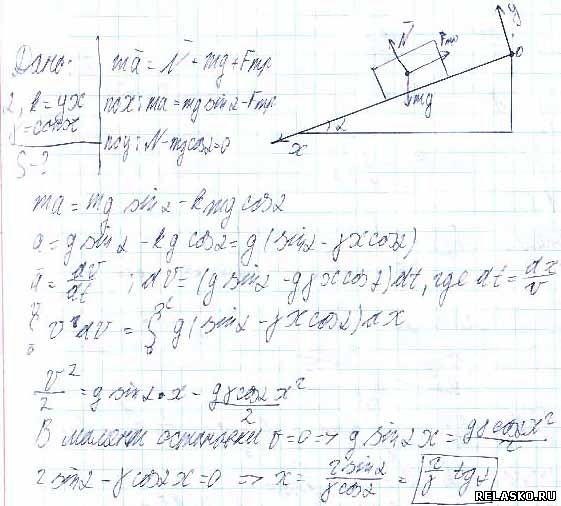 Дано:
α, k = γx
γ = const
S - ?
ma̅ = N̅ + mg + Fтр
по x: ma = mg sin α - Fтр
по y: N - mg cos α = 0
y
N̅
Fтр
O
mg
α
x
ma = mg sin α - kmg cos α
a = g sin α - kg cos α = g (sin α - γx cos α)
a̅ = dv/dt ; dv = (g sin α - gγx cos α) dt, где dt = dx/v
∫ v dv = ∫ g (sin α - γx cos α) dx
v²/2 = g sin α · x - gγ cos α x²/2
В момент остановки v = 0 => g sin α x = gγ cos α x²/2
2 sin α - γ cos α x = 0 => x = 2 sin α/γ cos α = 2/γ tg α
RELASKO.RU